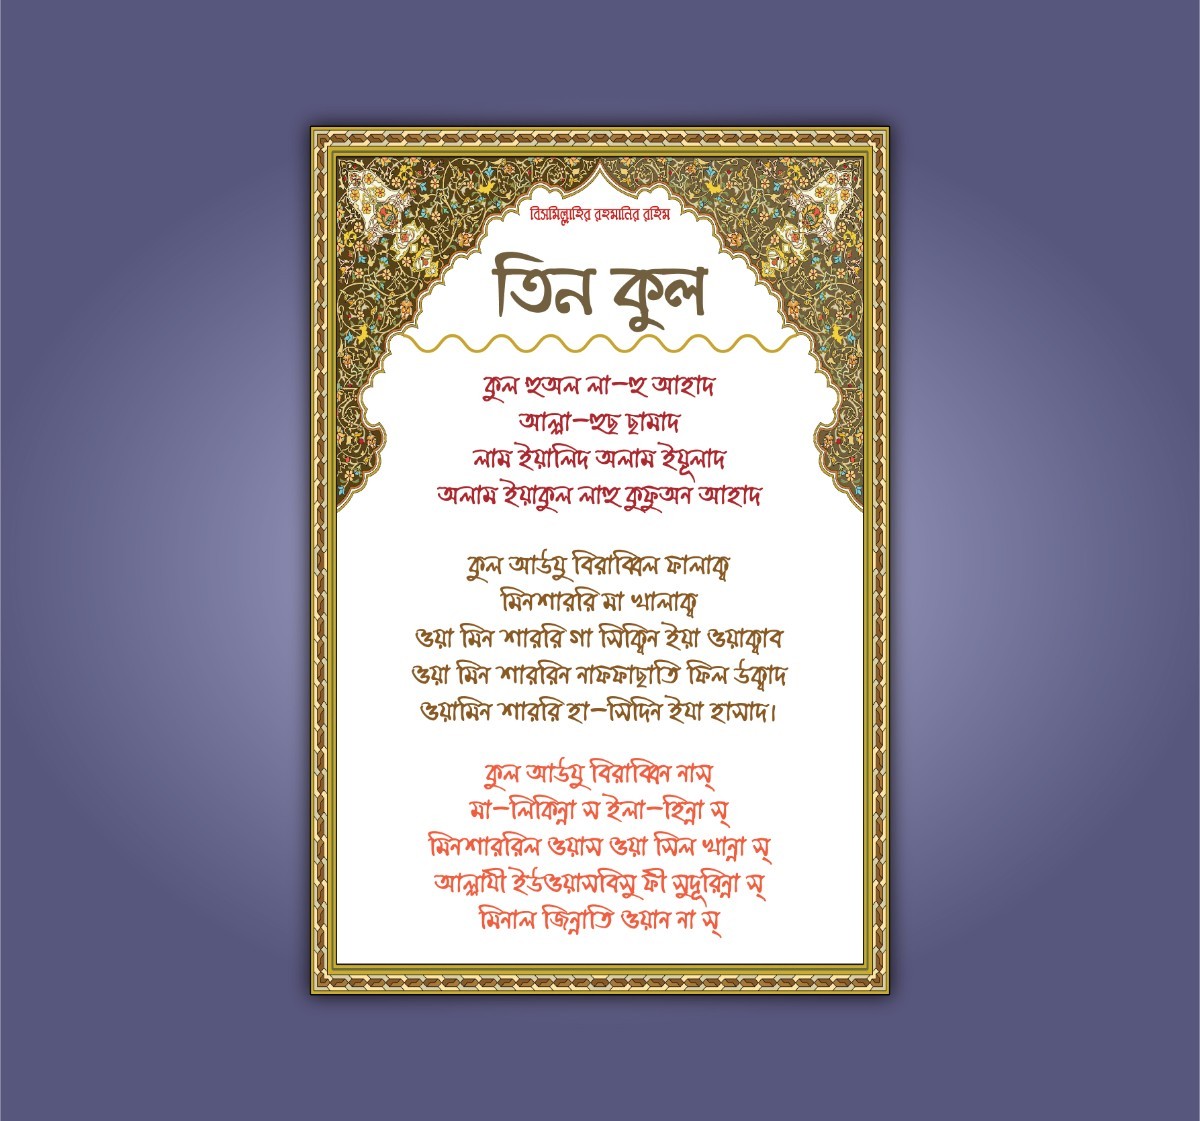 বিসমিল্লাহির রহমানির রহিম
তিন কুল
কুল হুঅল লা-হু আহাদ
আল্লা-হুছ ছামাদ
লাম ইয়ালিদ অলাম ইয়ূলাদ
অলাম ইয়াকুল লাহু কুফুঅন আহাদ
কুল আউযু বিরাব্বিল ফালাক্ব
মিনশাররি মা খালাক্ব
ওয়া মিন শাররি গা সিক্বিন ইয়া ওয়াক্বাব
ওয়া মিন শাররিন নাফফাছাতি ফিল উক্বাদ
ওয়ামিন শাররি হা-সিদিন ইযা হাসাদ।
কুল আউযু বিরাব্বিন নাস্
মা-লিকিন্না স ইলা-হিন্না স্
মিনশাররিল ওয়াস ওয়া সিল খান্না স্
আল্লাযী ইউওয়াসবিসু ফী সুদূরিন্না স্
মিনাল জিন্নাতি ওয়ান না স্